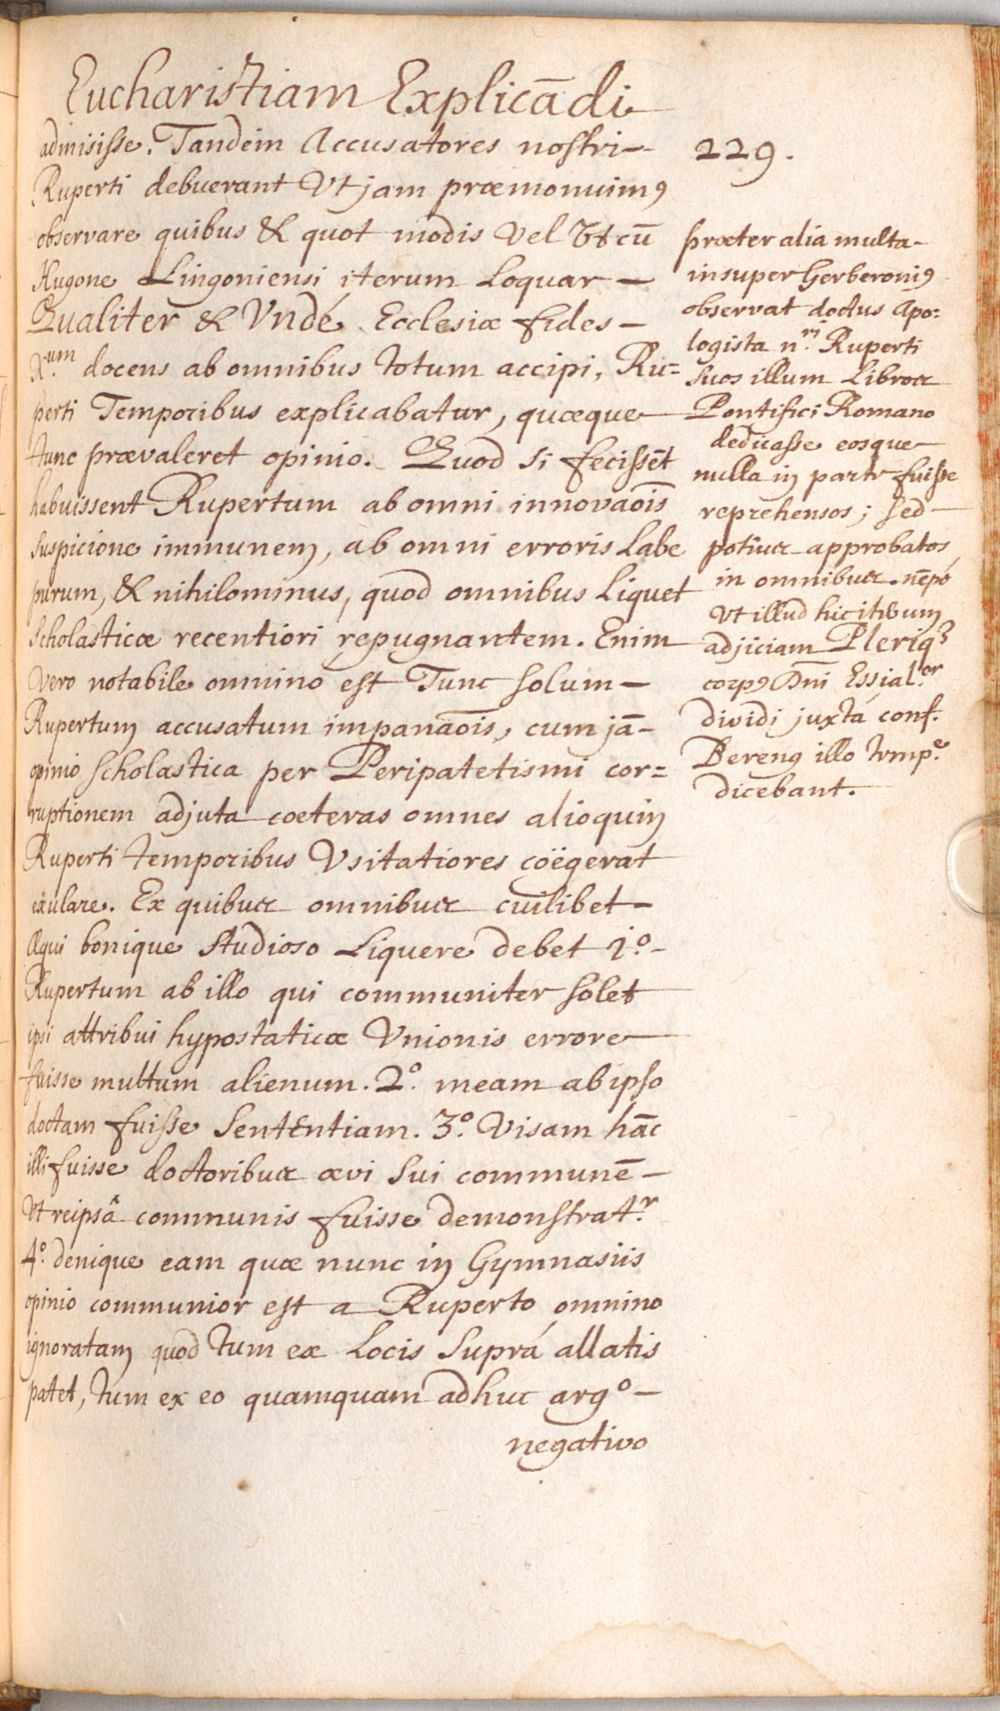 Eucharistiam Explicādi
229.
admisisse. Tandem Accusatores nostri—
Ruperti debuerant Vt jam præmonuimꝰ
observare quibus & quot modis Vel Vt cū
Hugone Lingoniensi iterum Loquar—
Qualiter & Vndé Ecclesiæ fides—
X.um docens ab omnibus totum accipi, Ru=
perti Temporibus explicabatur, quæque—
tunc prævaleret opinio. Quod si fecissēt
habuissent Rupertum ab omni innovaōis
suspicione immunem, ab omni erroris Labe
purum, & nihilominus, quod omnibus Liquet
scholasticæ recentiori repugnantem. Enim
vero notabile omnino est Tunc solum—
Rupertum accusatum impanaōis, cum jā—
opinio scholastica per Peripatetismi cor=
ruptionem adjuta coeteras omnes alioquin
Ruperti temporibus Vsitatiores coëgerat
exulare. Ex quibus omnibus cuilibet—
Æqui bonique studioso Liquere debet 1.º—
Rupertum ab illo qui communiter solet
ipsi attribui hypostaticæ Vnionis errore—
fuisse multum alienum. 2.º meam ab ipso
doctam fuisse sententiam. 3.º Visam hāc
illi fuisse doctoribus ævi sui communē—
Vt reipsâ communis fuisse demonstrat.r
4.º denique eam quæ nunc in Gymnasiis
opinio communior est a Ruperto omnino
ignoratam quod tum ex Locis suprá allatis
patet, tum ex eo quamquam adhuc argº—
negativo
præter alia multa—
insuper Gerberoniꝰ
observat doctus Apo:
logista n.ri Ruperti
suos illum Libros
Pontifici Romano
dedicasse eosque—
nulla in parte fuisse
reprehensos; sed—
potius approbatos
in omnibus.
Vt illud hic iterum
adjiciam Pleriq3
corpꝰ Dñi Essial.er
dividi juxtá conf.
Bereng illo temp.e
dicebant.